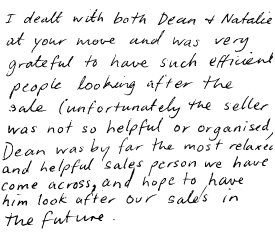 I dealt with both Dean & Natalie
at your move and was very
grateful to have such efficient
people looking after the
sale (unfortunately the seller
was not so helpful or organised,
Dean was by far the most relaxed
and helpful sales person we have
come across, and hope to have
him look after our sales in
the future.